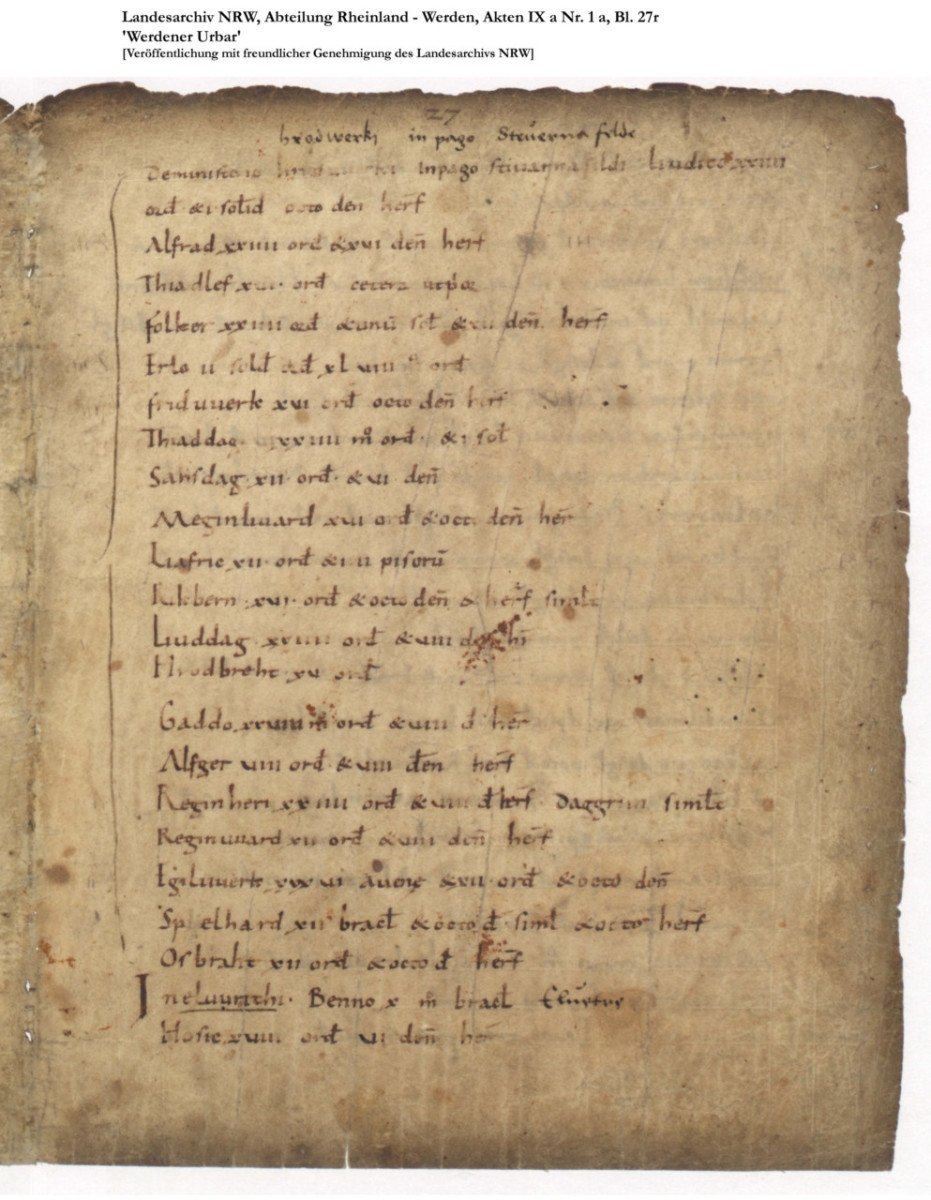 Landesarchiv NRW, Abteilung Rheinland - Werden, Akten IX a Nr. 1 a, Bl. 27r
'Werdener Urbar'
[Veröffentlichung mit freundlicher Genehmigung des Landesarchivs NRW]
27
hrodwerki in pago Steuerna felde
De ministerio in pago stiuarnafildi Liudico xxiiii
ord̄ & i solid octo den herf̄
Alfrad xxiiii ord & xvi den̄ herf
Thiadlef xvi ord cetera
folker xxiiii ord̄ & unū sol & xii den̄ herf̄
Erlo ii sold ad xl viii m̄ ord
friduuerk xvi ord̄ octo den̄ herf
Thiaddag m̄ ord & i sol̄
Sahsdag xii ord̄ & vi den̄
Meginhuard xvi ord̄ & octo den̄ her̄
Liafric xii ord̄ & i ū pisorū
Rikbern xvi ord̄ & octo den̄ & herf̄ simlr̄
Liuddag xxiiii ord̄ & viii den
Hrodbreht xv ord̄
Gaddo xxviiii m̄ ord̄ & viii d her
Alfger viii ord & viii den herf̄
Reginheri xxiiii ord̄ & viii d herf Daggrim simlr̄
Reginuuard xii ord̄ & viii den̄ herf̄
Egiluuerk xxxvi auene & xii ord̄ & octo den̄
Spelhard xii brael̄ & octo d̄ siml̄ & octo herf̄
Osbraht xii ord̄ & octo d̄ herf̄
In Benno x m̄ brael̄
Hosic xviii ord̄ vi den̄ her